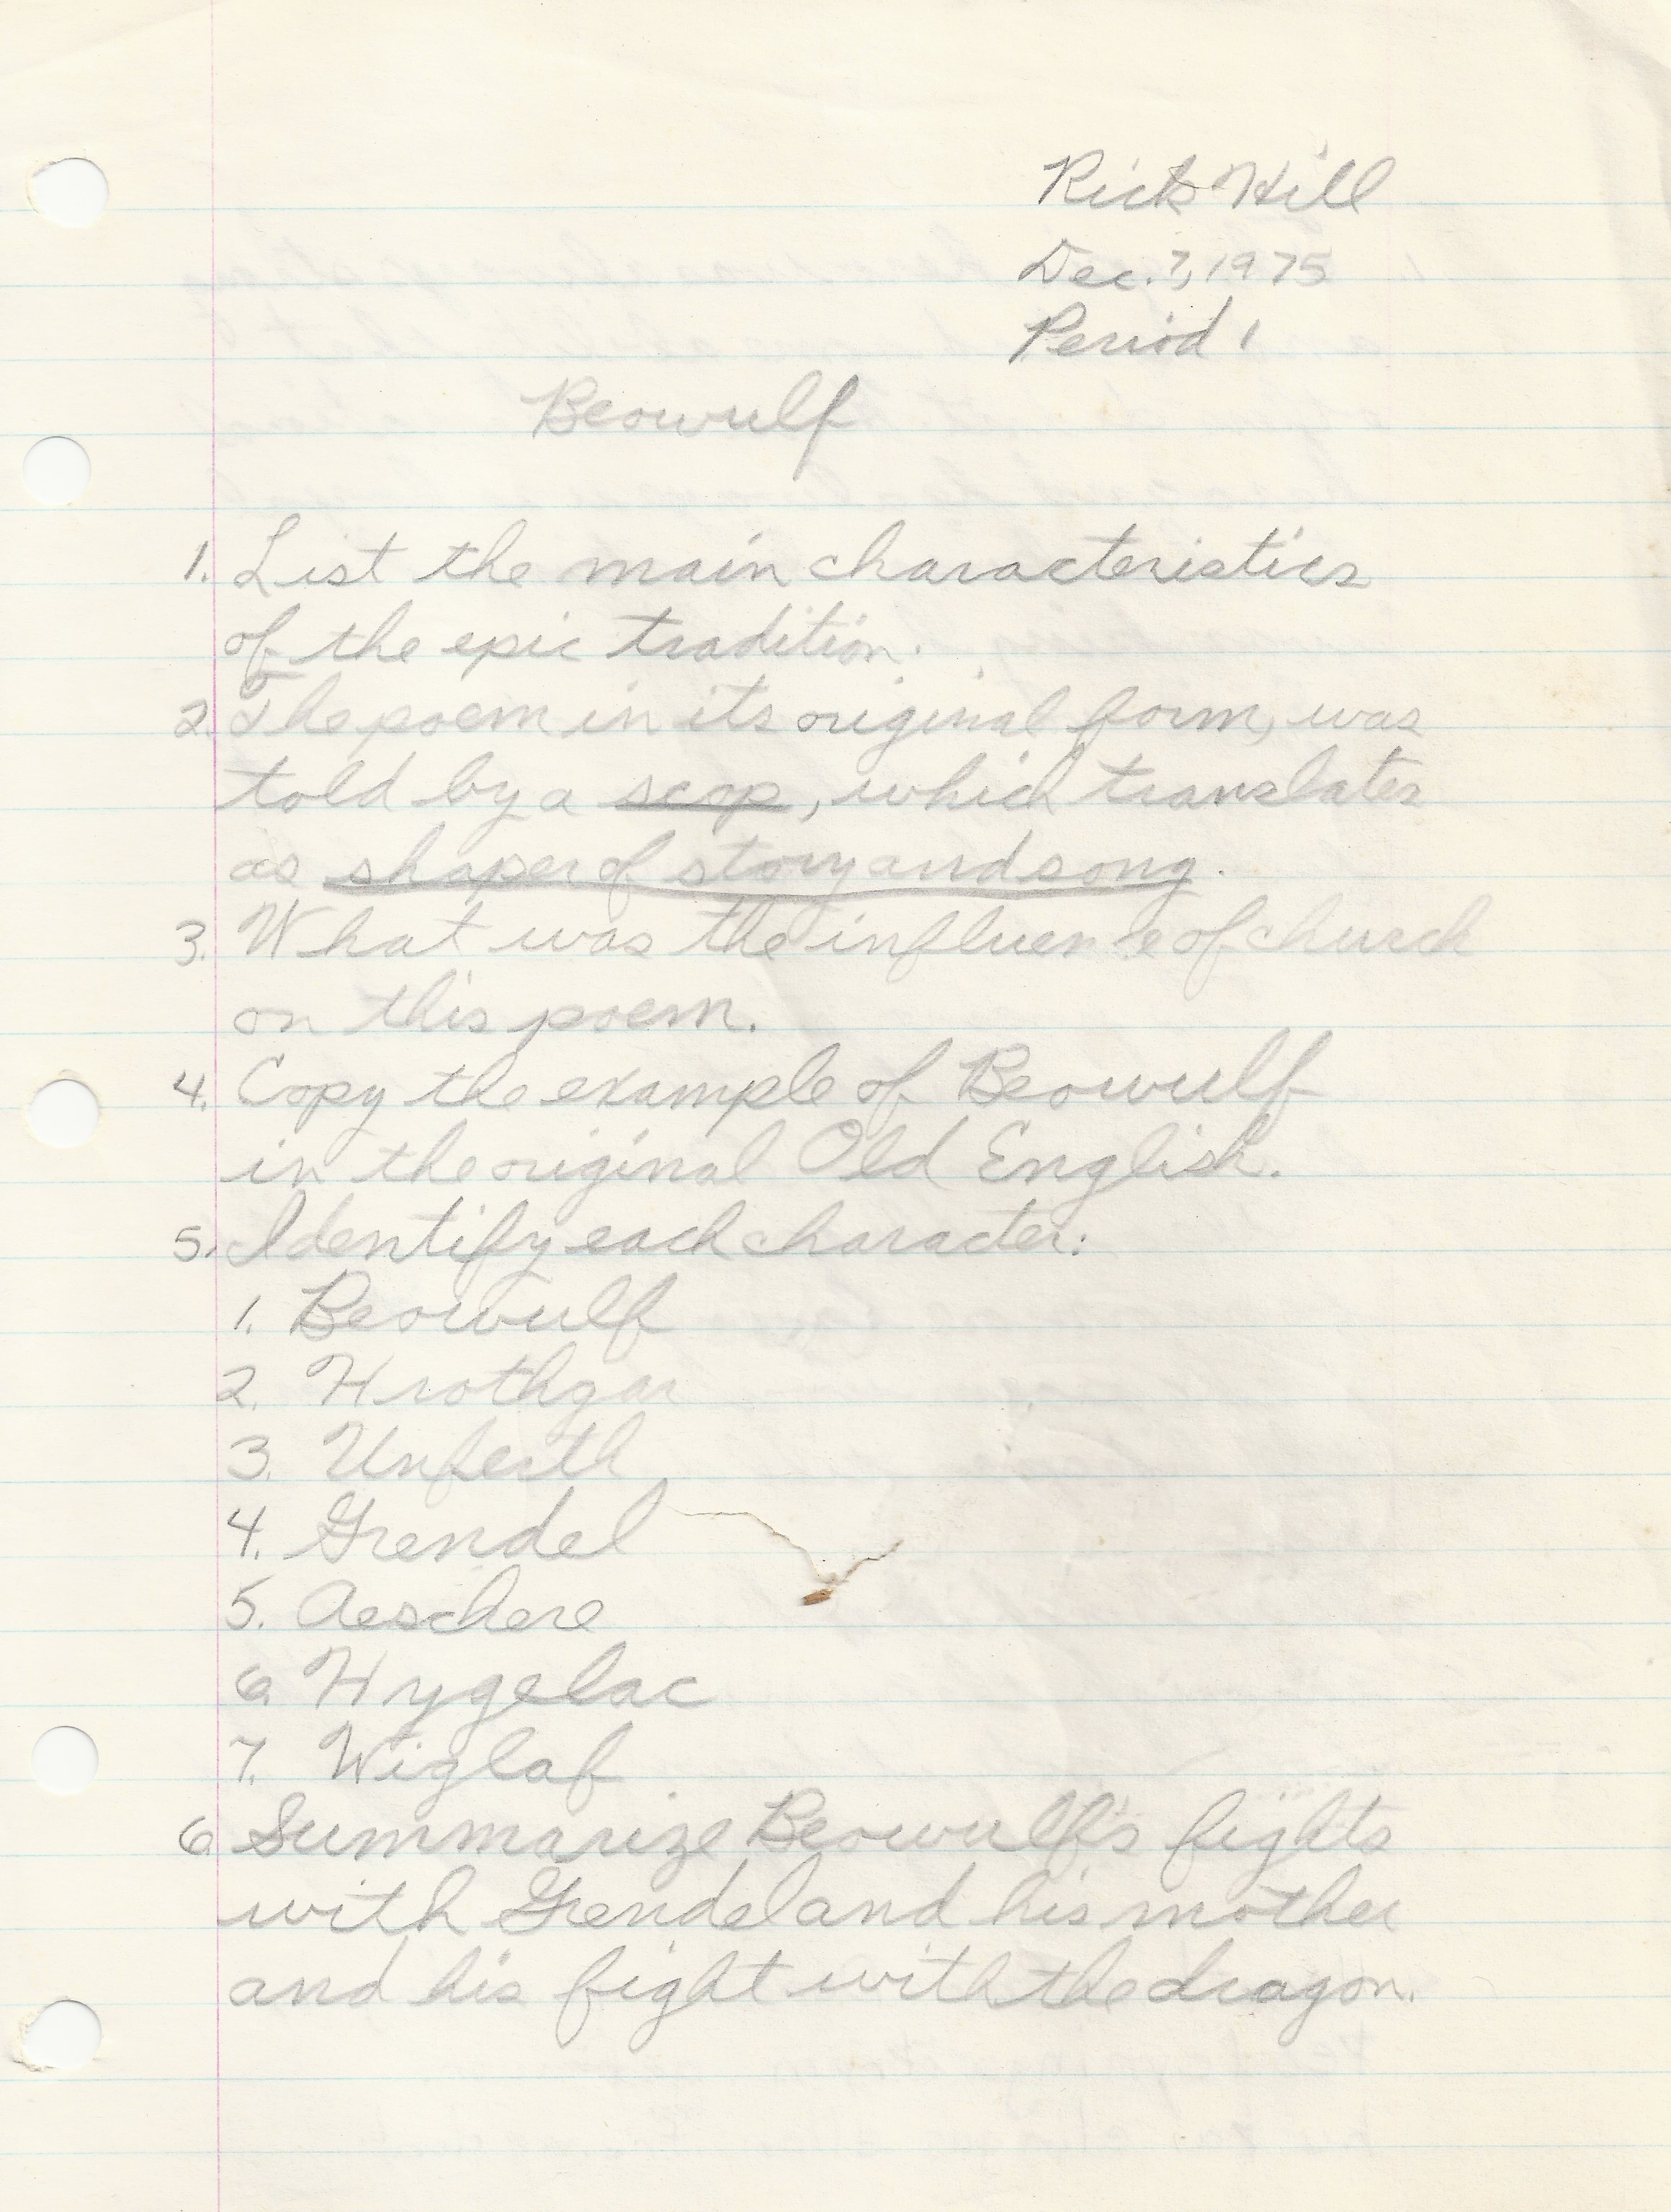 Rick Hill
Dec. 7, 1975
Period 1
Beowulf
1. List the main characteristics
of the epic tradition.
2. The poem in its original form, was
told by a scop, which translates
as shaper of story and song.
3. What was the influence of church
on this poem.
4. Copy the example of Beowulf
in the original Old English.
5. Identify each character:
1. Beowulf
2. Hrothgar
3. Unferth
4. Grendel
5. Aeschere
6. Hygelac
7. Wiglaf
6. Summarize Beowulf's fights
with Grendel and his mother
and his fight with the dragon.